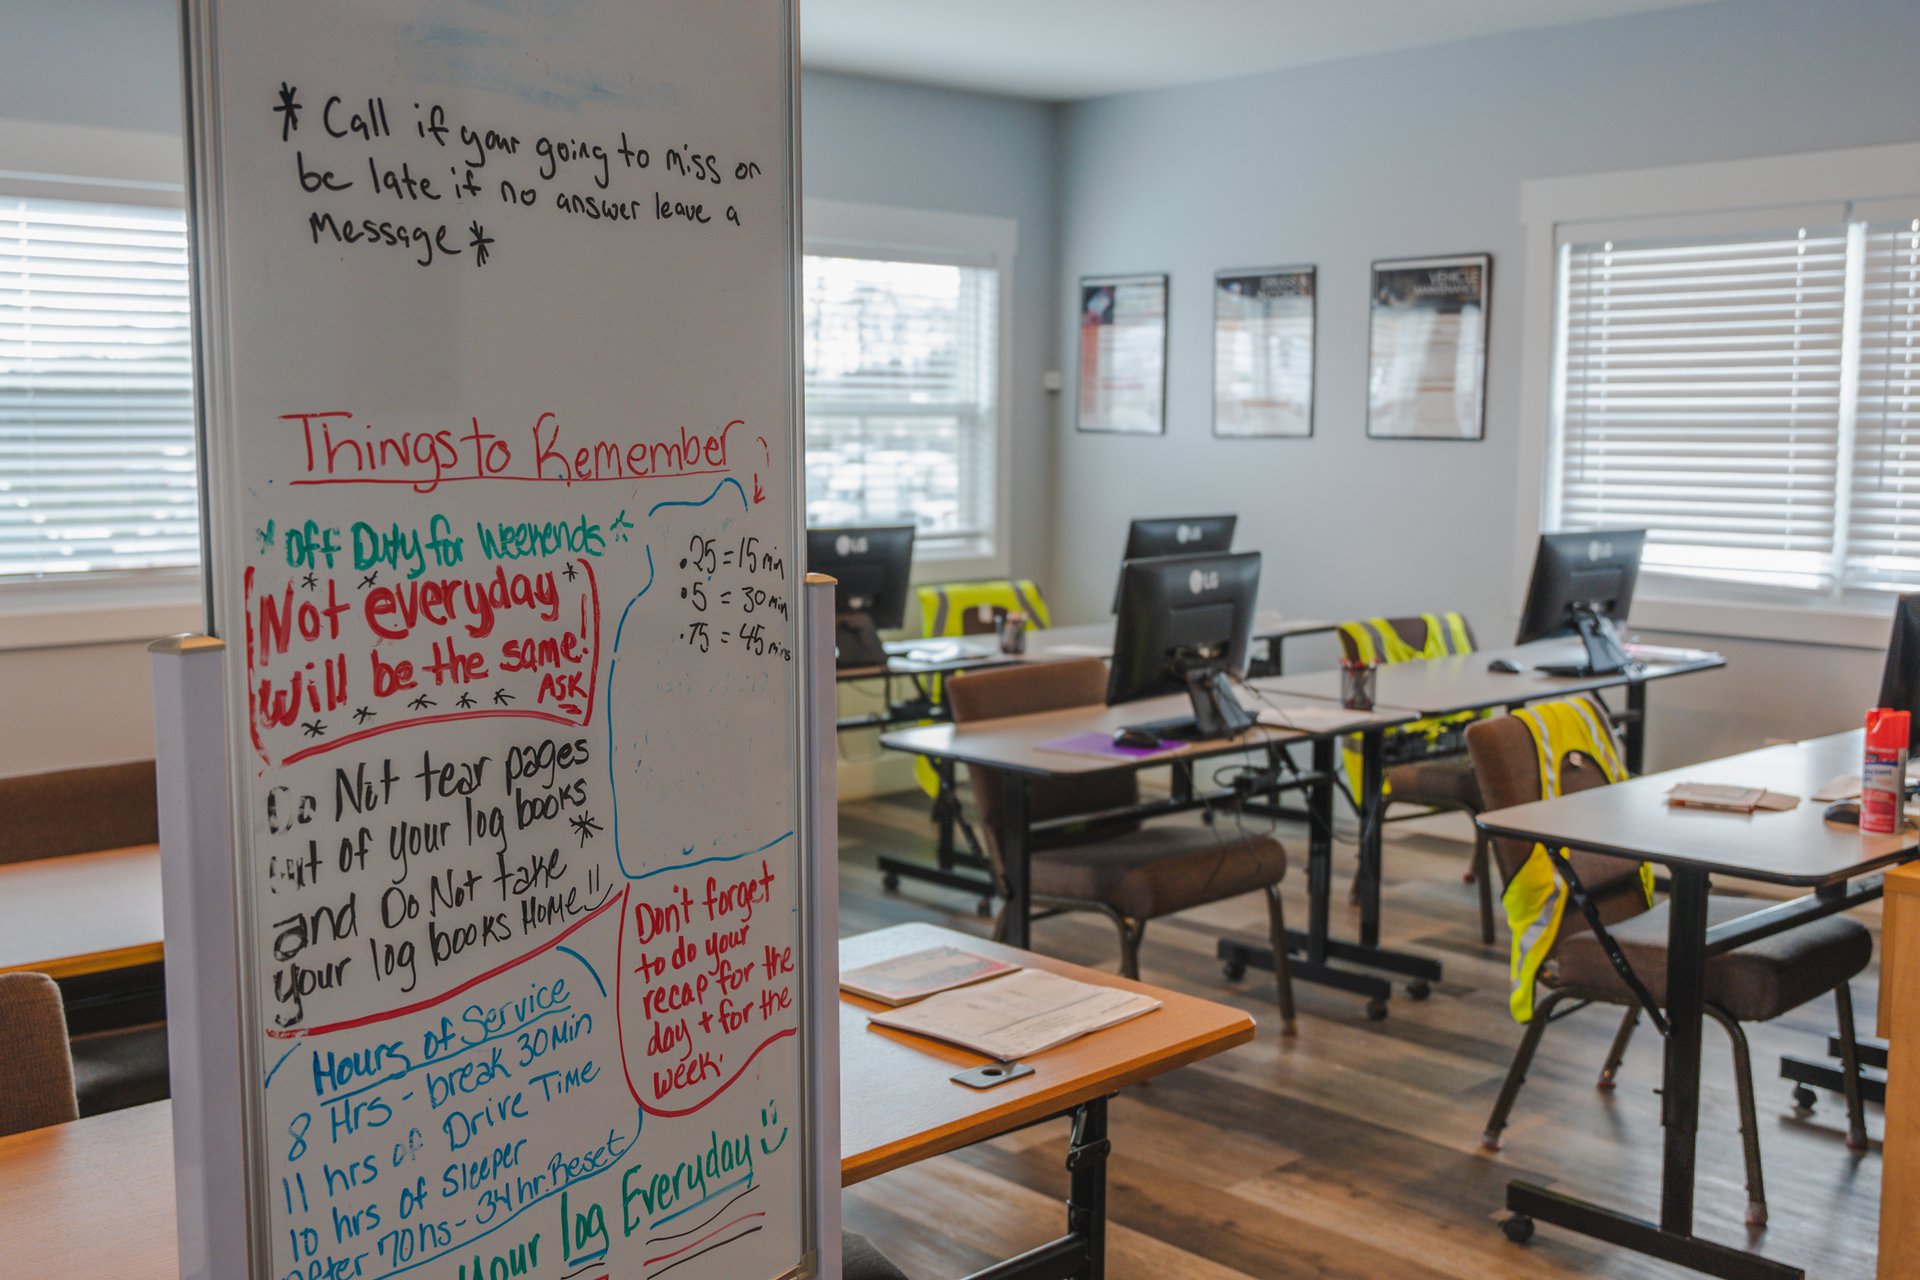 * Call if your going to miss or
be late if no answer leave a
Message *
Things to Remember
* Off Duty for Weekends *
Not everyday
will be the same!
ASK
.25 = 15 min
.5 = 30 min
.75 = 45 mins
Do Not tear pages
out of your log books
and Do Not take
your log books Home!!
Don't forget
to do your
recap for the
day + for the
week.
Hours of Service
8 Hrs - break 30 Min
11 hrs of Drive Time
10 hrs of Sleeper
After 70 hrs - 34 hr. Reset
Your log Everyday
LG
LG
LG
LG
VEHICLE
MAINTENANCE